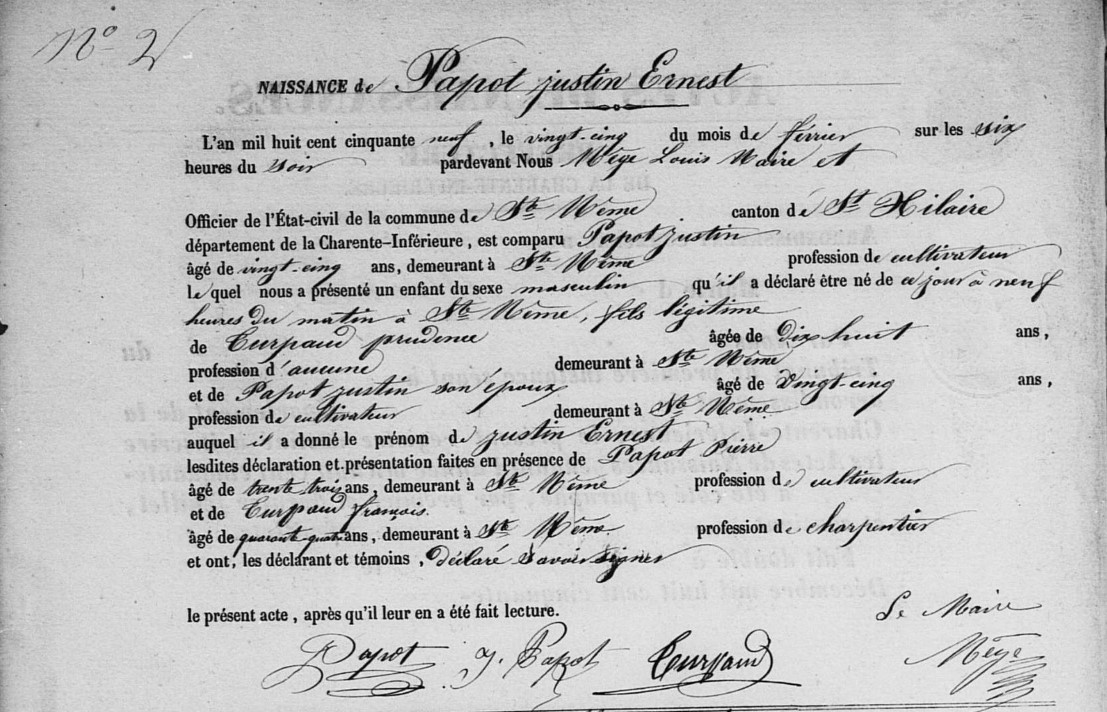 N° 2
NAISSANCE de Papot justin Ernest
L'an mil huit cent cinquante neuf, le vingt-cinq du mois de février sur les six
heures du soir pardevant Nous Mège Louis Maire et
Officier de l'État-civil de la commune de Ste Même canton de St Hilaire
département de la Charente-Inférieure, est comparu Papot justin
âgé de vingt-cinq ans, demeurant à Ste Même profession de cultivateur
Le quel nous a présenté un enfant du sexe masculin qu'il a déclaré être né de ce jour à neuf
heures du matin à Ste Même, fils légitime
de Turpaud prudence âgée de dix huit ans,
profession d'aucune demeurant à Ste Même
et de Papot justin son époux âgé de vingt-cinq ans,
profession de cultivateur demeurant à Ste Même
auquel il a donné le prénom de justin Ernest
lesdites déclaration et présentation faites en présence de Papot Pierre
âgé de trente trois ans, demeurant à Ste Même profession de cultivateur
et de Turpaud françois.
âgé de quarante-quatre ans, demeurant à Ste Même profession de charpentier
et ont, les déclarant et témoins, déclaré savoir signer
le présent acte, après qu'il leur en a été fait lecture. Le Maire
Papot J. Papot Turpaud Mège